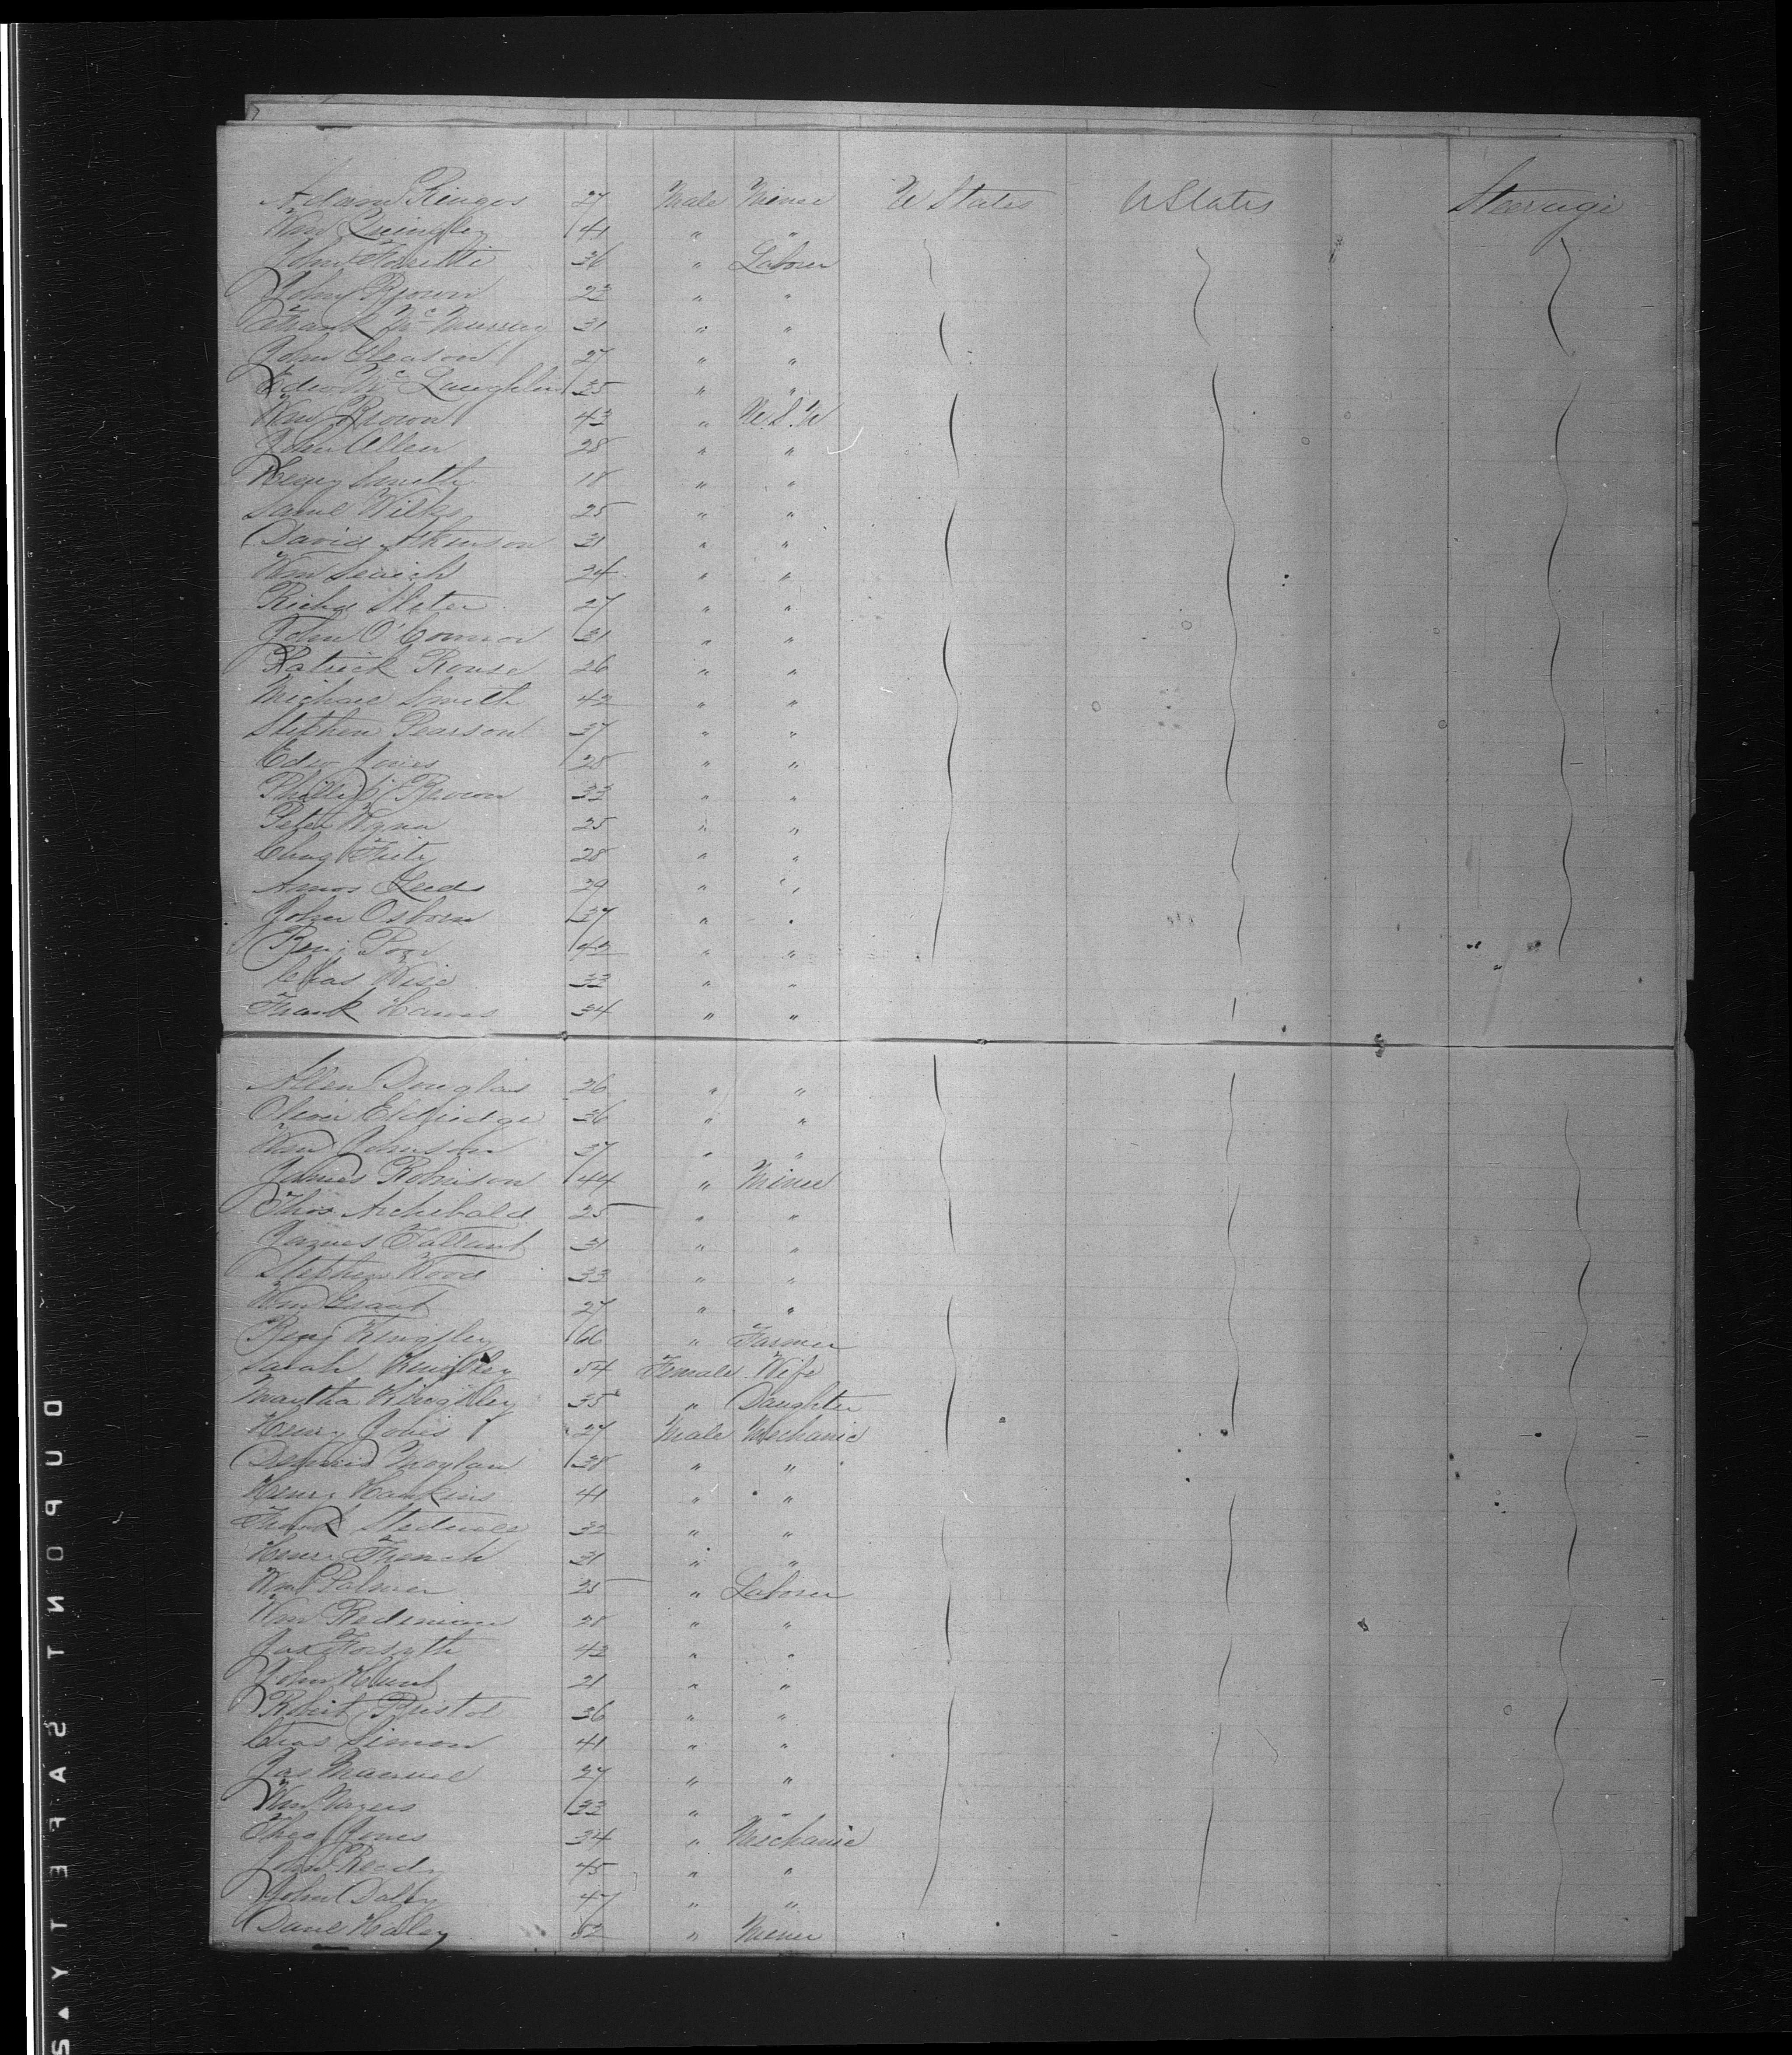 Adam Ringes 27 Male Miner U States U States Steerage
Wm Quingley 41 " "
John Forsette 36 " Laborer
John Brown 23 " "
Frank Mc Murray 31 " "
John Gleason 27 " "
Edwd Mc Laughlin 35 " "
Wm Brown 43 " U.S.N
John Allen 28 " "
Henry Smith 18 " "
Saml Wilks 25 " "
David Atkinson 31 " "
Wm 24 " "
Richd Slater 27 " "
John O'Connor 31 " "
Patrick Rouse 26 " "
Michael Smith 42 " "
Stephen Pearson 37 " "
Edw Jones 28 " "
Phillip Brown 33 " "
Peter 25 " "
Chas Fritz 28 " "
Amos Leeds 29 " "
John Osborn 37 " "
Benj 42 " "
Chas Wise 33 " "
Frank Hawes 34 " "
Allen Douglas 26 " "
Oliver Eldridge 36 " "
Wm Johnson 37 " "
James Robinson 44 " Miner
Thos Archibald 25 " "
James Tallant 31 " "
Stephen Wood 33 " "
Wm Grant 27 " "
Benj Kingsley 66 " Farmer
Sarah Kingsley 54 Female Wife
Martha Kingsley 35 " Daughter
Henry Jones 27 Male Mechanic
Dennis Moylan 38 " "
Henry Hankins 41 " "
Frank 32 " "
Henry French 31 " "
Wm Palmer 25 " Laborer
Wm Redeman 28 " "
Jas Forsyth 43 " "
John Hunt 21 " "
Robert Bristol 36 " "
Chas Simon 41 " "
Jas Manuel 27 " "
Wm Myers 33 " "
Theo Jones 34 " Mechanic
John Reedy 45 " "
John Dalby 47 " "
Danl Haley 52 " Miner
DUPONT SAFETY S